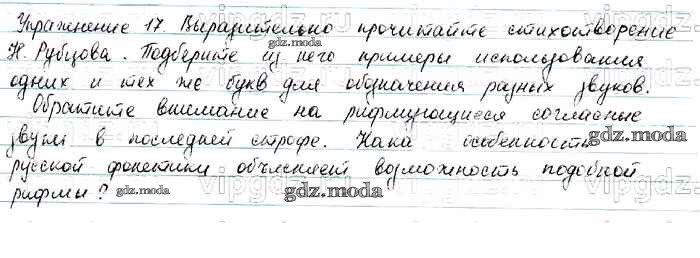 Упражнение 17. Выразительно прочитайте стихотворение
Н. Рубцова. Подберите из него примеры использования
одних и тех же букв для обозначения разных звуков.
Обратите внимание на рифмующиеся согласные
звуки в последней строфе. Кака особенность
gdz.moda
русской фонетики объясняет возможность подобной
рифмы?
gdz.moda
gdz.moda